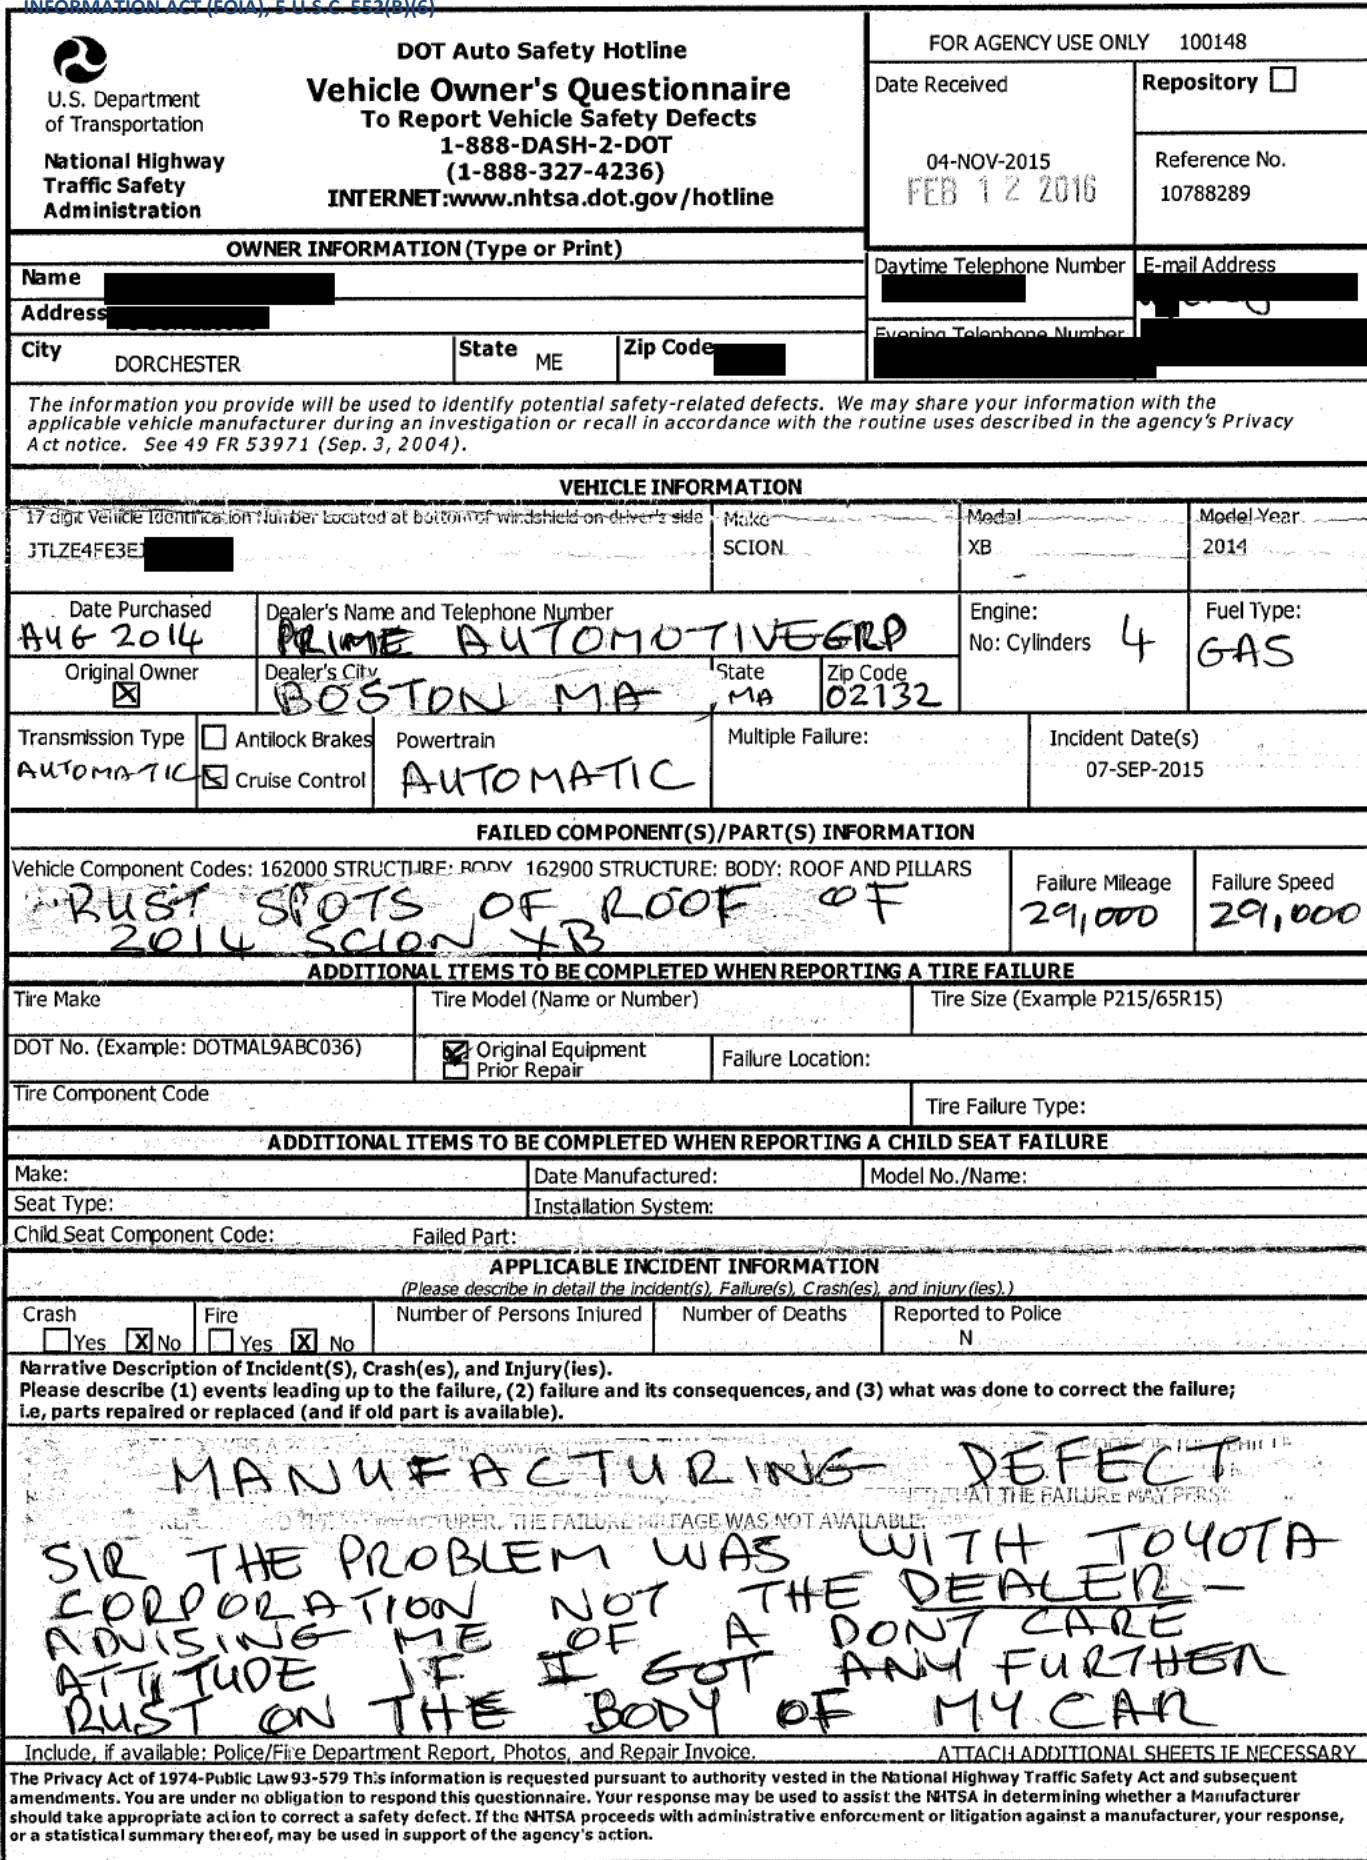 INFORMATION ACT (FOIA), 5 U.S.C. 552(B)(6)
U.S. Department
of Transportation
National Highway
Traffic Safety
Administration
DOT Auto Safety Hotline
Vehicle Owner's Questionnaire
To Report Vehicle Safety Defects
1-888-DASH-2-DOT
(1-888-327-4236)
INTERNET:www.nhtsa.dot.gov/hotline
FOR AGENCY USE ONLY 100148
Date Received
04-NOV-2015
FEB 12 2016
Repository
Reference No.
10788289
OWNER INFORMATION (Type or Print)
Name
Address
City DORCHESTER State ME Zip Code
Daytime Telephone Number E-mail Address
Evening Telephone Number
The information you provide will be used to identify potential safety-related defects. We may share your information with the
applicable vehicle manufacturer during an investigation or recall in accordance with the routine uses described in the agency's Privacy
Act notice. See 49 FR 53971 (Sep. 3, 2004).
VEHICLE INFORMATION
17 digit Vehicle Identification Number Located at bottom of windshield on driver's side Make Model Model Year
JTLZE4FE3E SCION XB 2014
Date Purchased Dealer's Name and Telephone Number Engine: Fuel Type:
AUG 2014 PRIME AUTOMOTIVE GRP No: Cylinders 4 GAS
Original Owner Dealer's City State Zip Code
X BOSTON MA MA 02132
Transmission Type Antilock Brakes Powertrain Multiple Failure: Incident Date(s)
AUTOMATIC Cruise Control AUTOMATIC 07-SEP-2015
FAILED COMPONENT(S)/PART(S) INFORMATION
Vehicle Component Codes: 162000 STRUCTURE: BODY 162900 STRUCTURE: BODY: ROOF AND PILLARS Failure Mileage Failure Speed
RUST SPOTS OF ROOF OF 29,000 29,000
2014 SCION XB
ADDITIONAL ITEMS TO BE COMPLETED WHEN REPORTING A TIRE FAILURE
Tire Make Tire Model (Name or Number) Tire Size (Example P215/65R15)
DOT No. (Example: DOTMAL9ABC036) Original Equipment Failure Location:
Prior Repair
Tire Component Code Tire Failure Type:
ADDITIONAL ITEMS TO BE COMPLETED WHEN REPORTING A CHILD SEAT FAILURE
Make: Date Manufactured: Model No./Name:
Seat Type: Installation System:
Child Seat Component Code: Failed Part:
APPLICABLE INCIDENT INFORMATION
(Please describe in detail the incident(s), Failure(s), Crash(es), and injury(ies).)
Crash Fire Number of Persons Injured Number of Deaths Reported to Police
Yes X No Yes X No N
Narrative Description of Incident(S), Crash(es), and Injury(ies).
Please describe (1) events leading up to the failure, (2) failure and its consequences, and (3) what was done to correct the failure;
i.e, parts repaired or replaced (and if old part is available).
MANUFACTURING DEFECT
THAT THE FAILURE MAY
THE FAILURE MILEAGE WAS NOT AVAILABLE.
SIR THE PROBLEM WAS WITH TOYOTA
CORPORATION NOT THE DEALER -
ADVISING ME OF A DONT CARE
ATTITUDE IF I GOT ANY FURTHER
RUST ON THE BODY OF MY CAR
Include, if available: Police/Fire Department Report, Photos, and Repair Invoice. ATTACH ADDITIONAL SHEETS IF NECESSARY
The Privacy Act of 1974-Public Law 93-579 This information is requested pursuant to authority vested in the National Highway Traffic Safety Act and subsequent
amendments. You are under no obligation to respond this questionnaire. Your response may be used to assist the NHTSA in determining whether a Manufacturer
should take appropriate action to correct a safety defect. If the NHTSA proceeds with administrative enforcement or litigation against a manufacturer, your response,
or a statistical summary thereof, may be used in support of the agency's action.